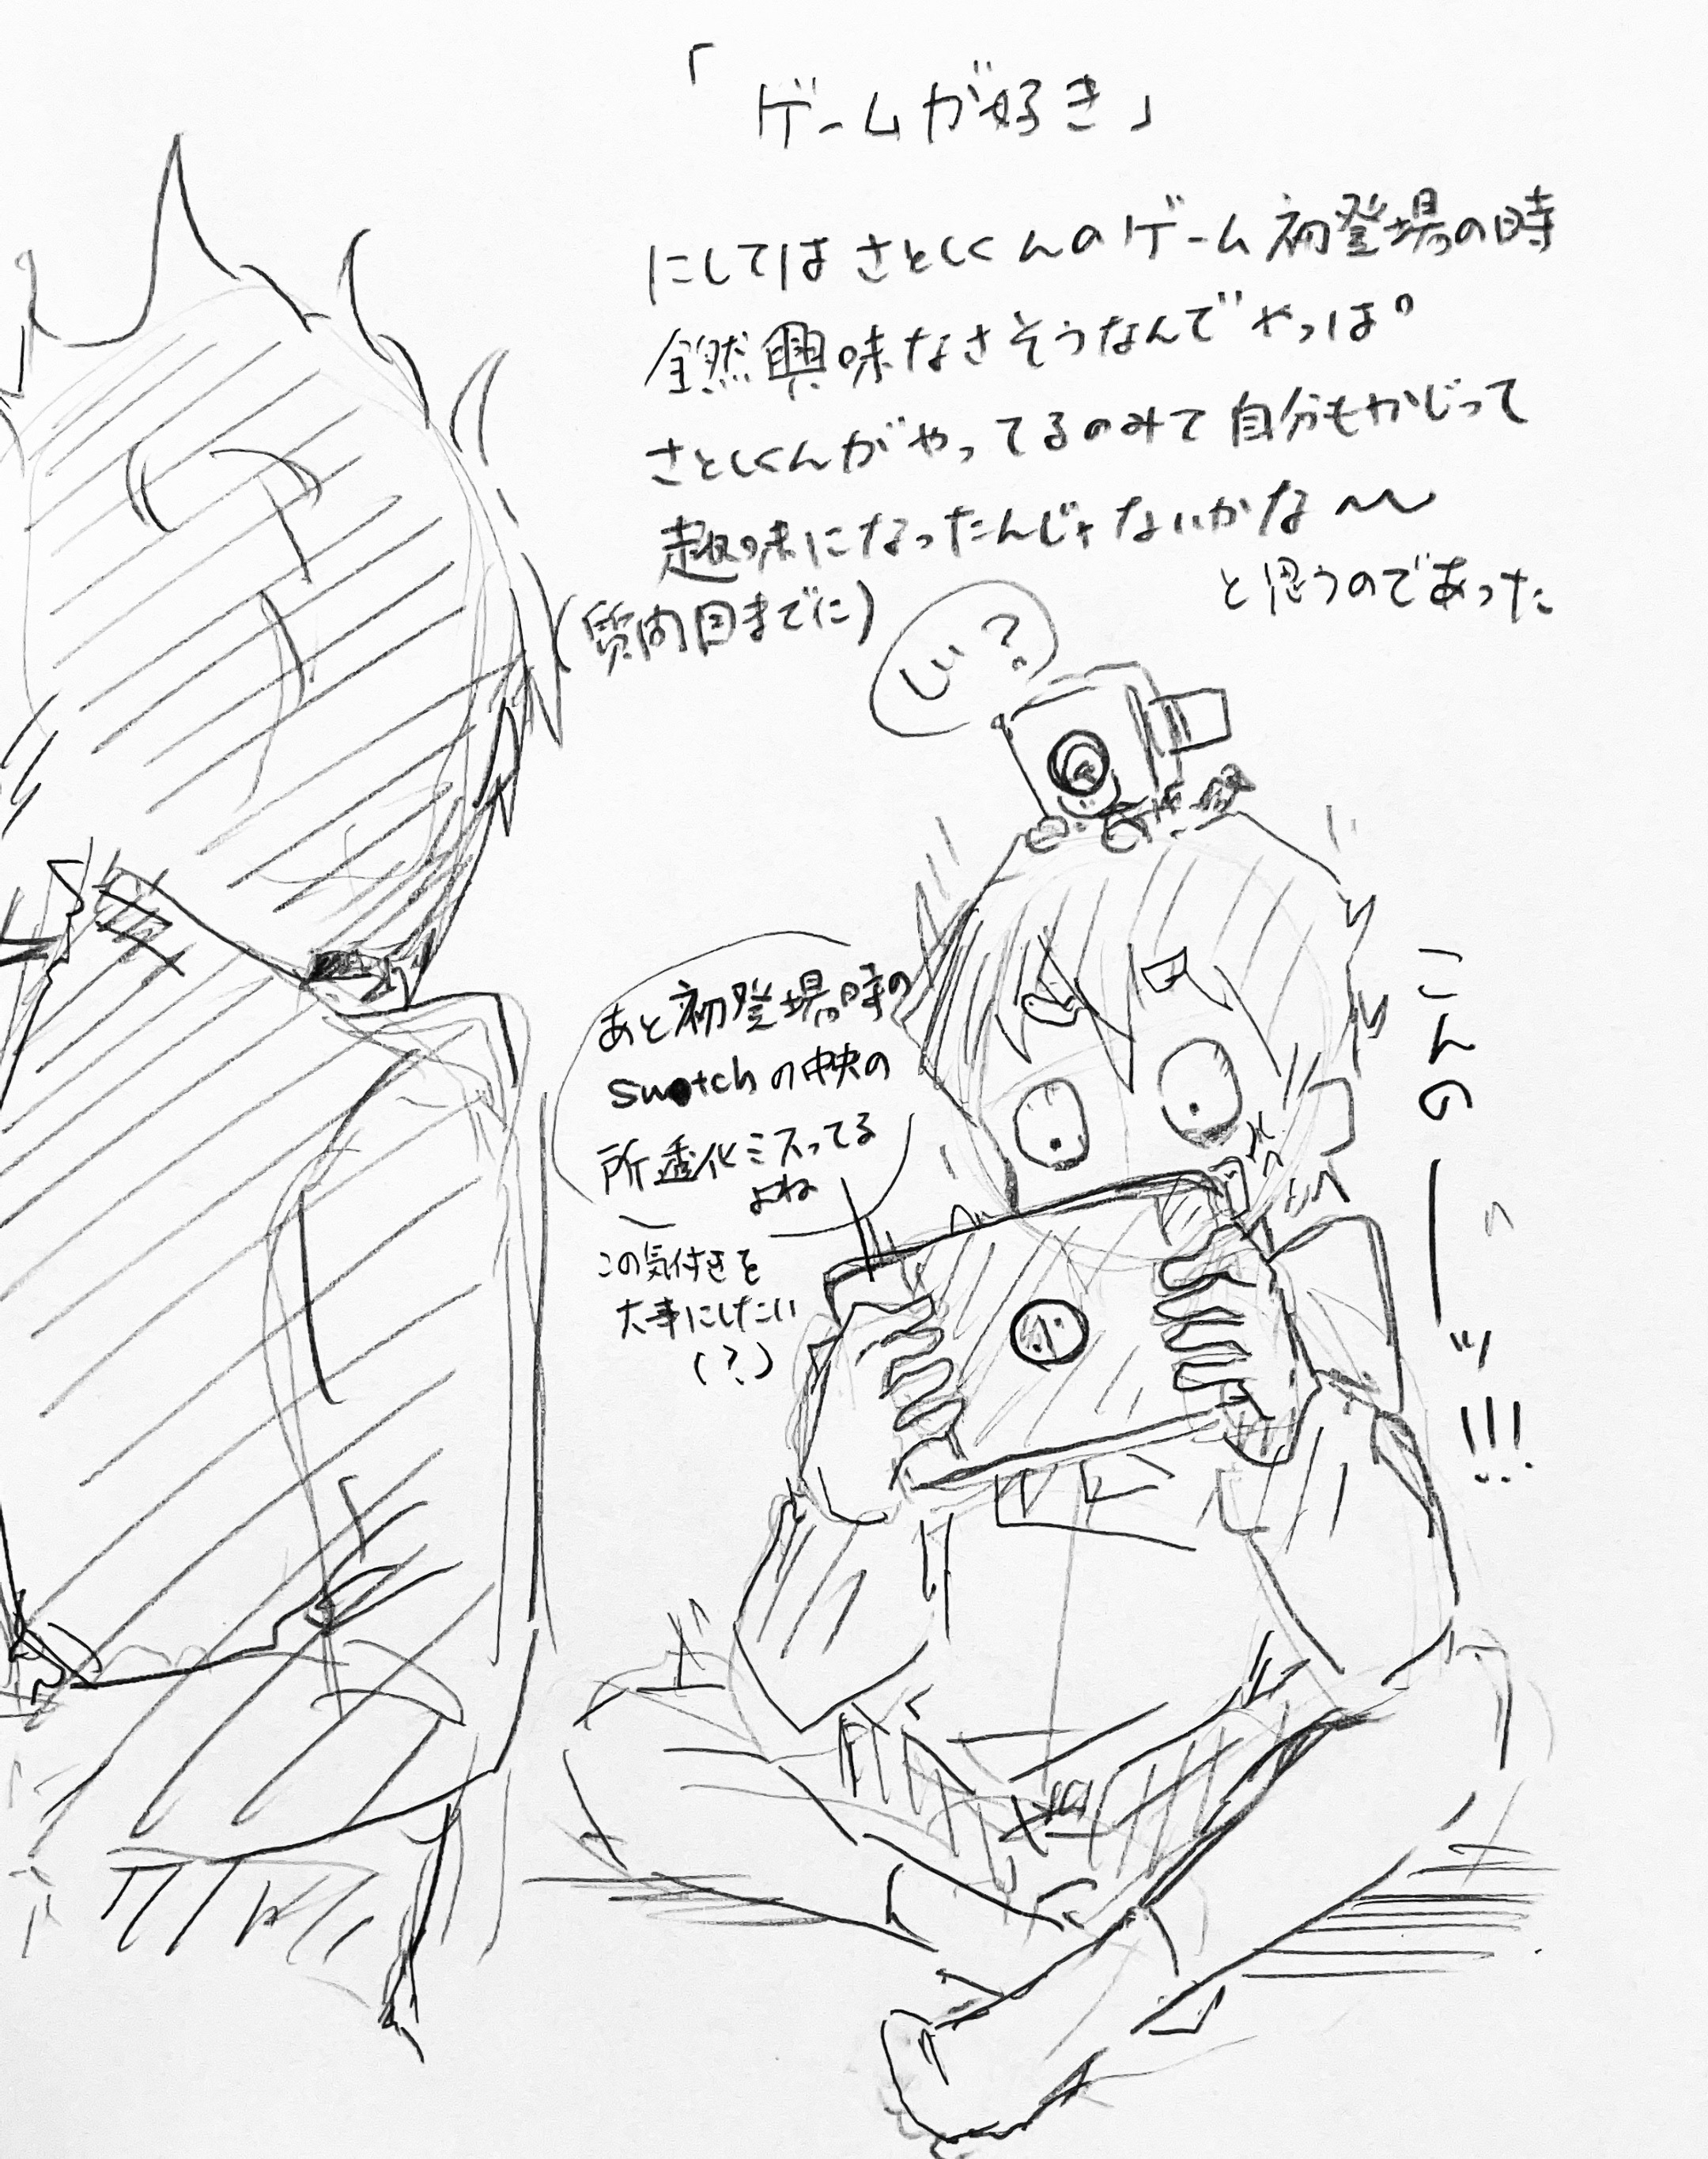 「ゲームが好き」
にしてはさとしくんのゲーム初登場の時
全然興味なさそうなんでやっぱ
さとしくんがやってるのみて自分もかじって
趣味になったんじゃないかな〜〜
と思うのであった
(質問回までに)
じ?
あと初登場時の
switchの中央の
所透化ミスってる
よね
この気付きを
大事にしたい
(?)
こんのーーッ!!!